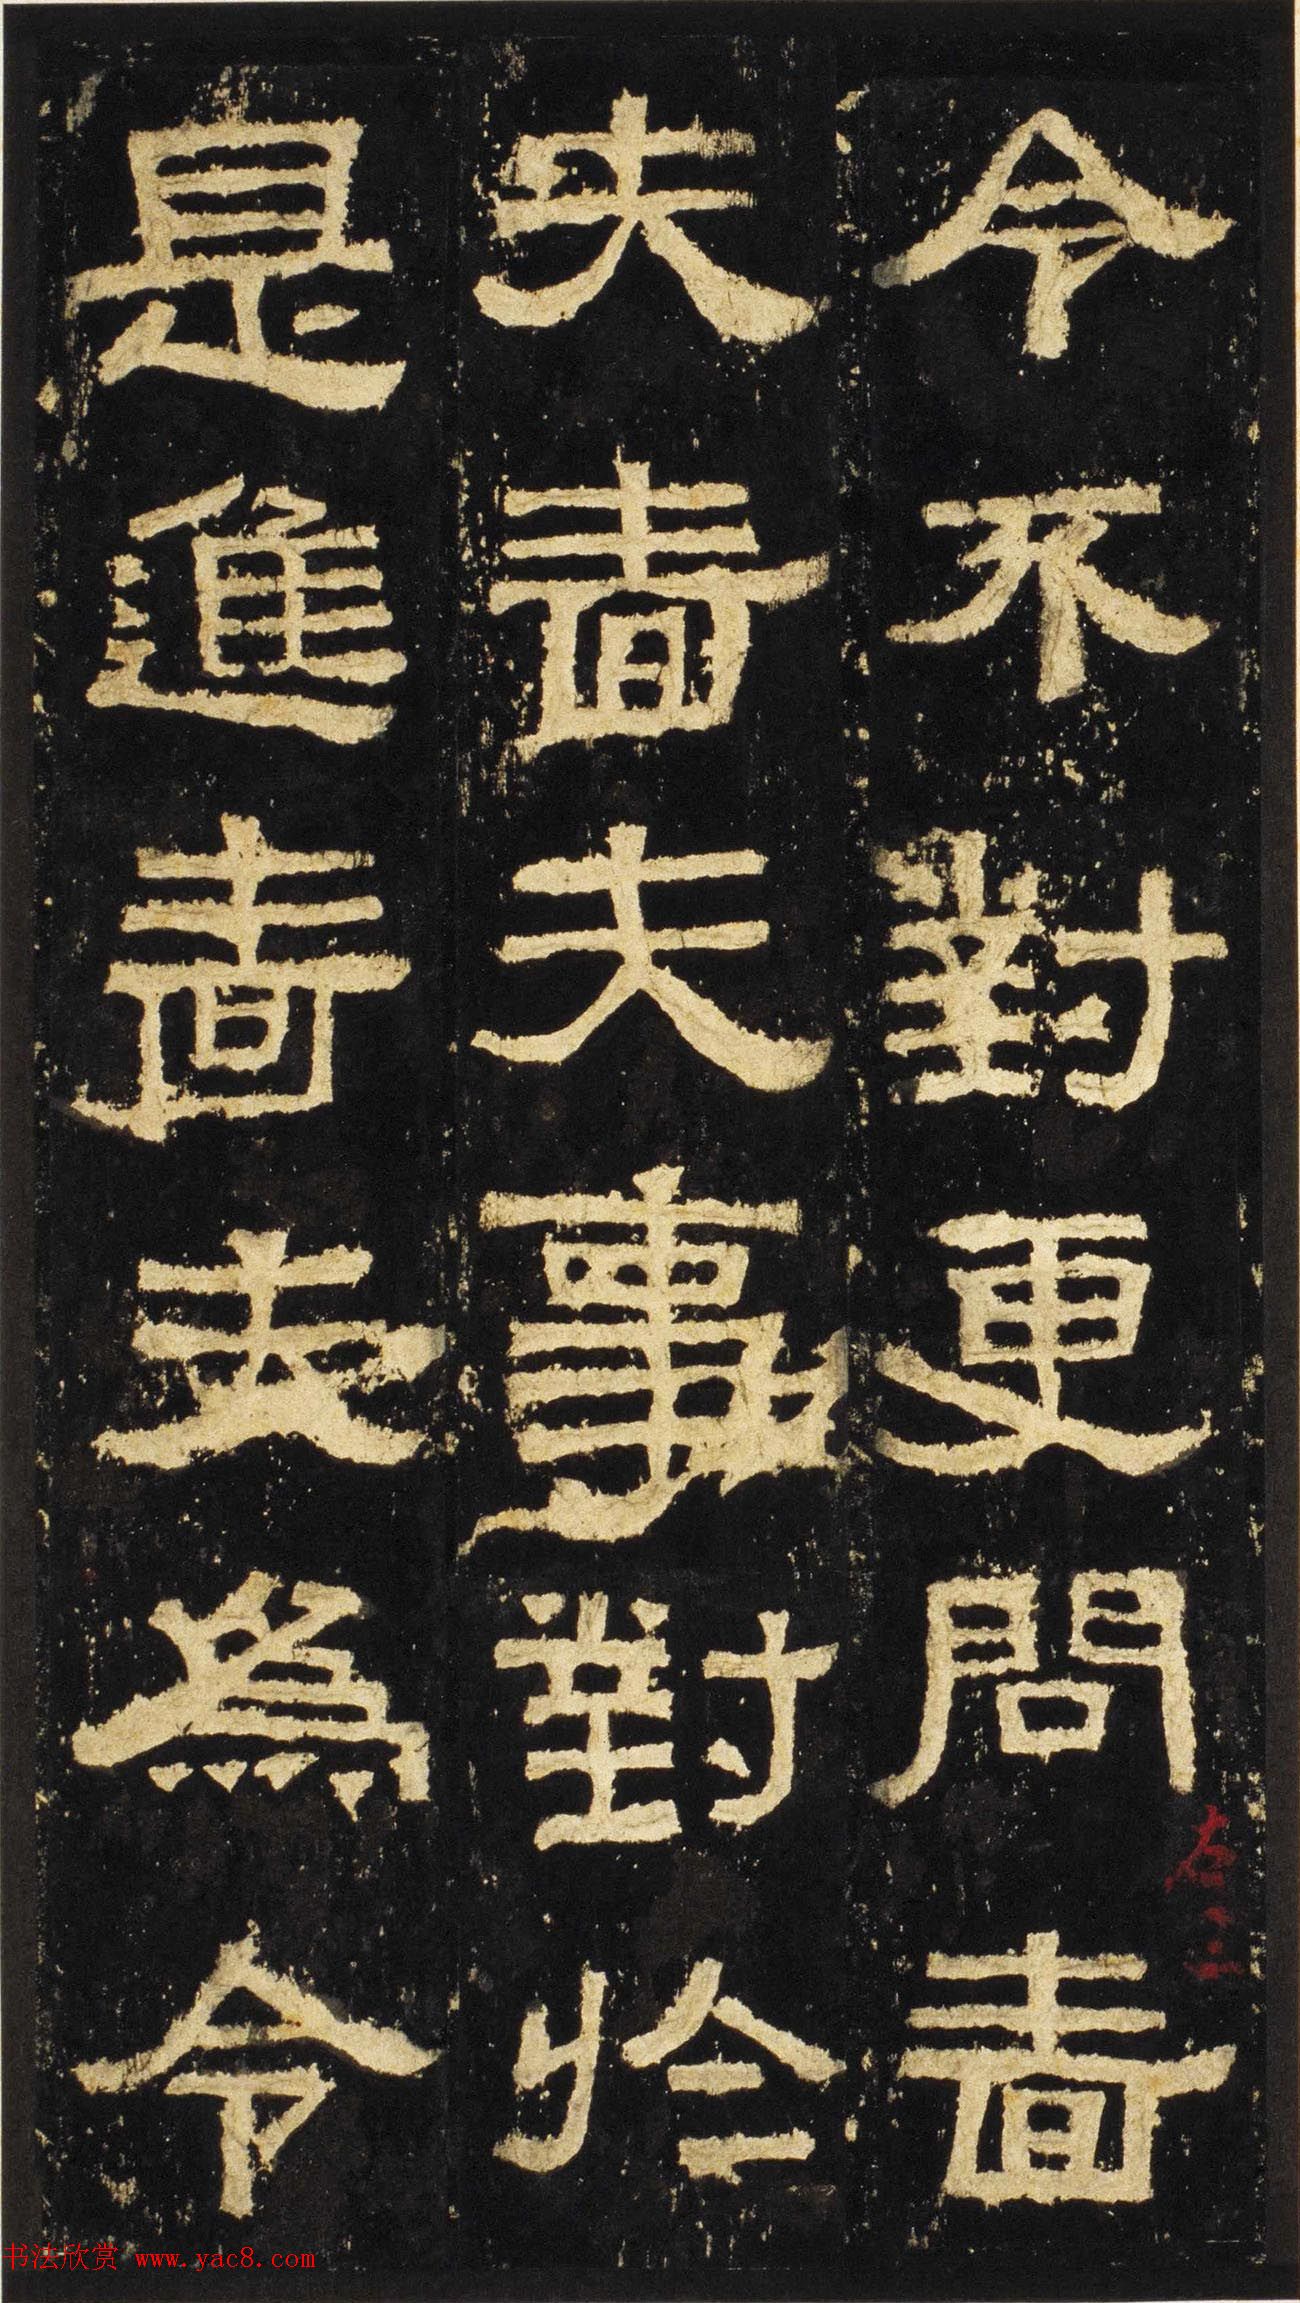 令不對更問嗇
夫嗇夫事對於
是進嗇夫為令
右三
书法欣赏 www.yac8.com